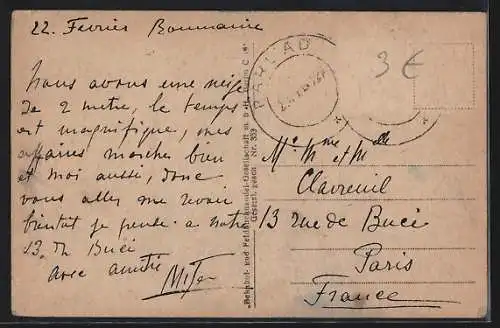 22. Fevrier Roumanie
Nous avons une neige
de 2 metre, le temps
est magnifique, mes
affaires marches bien
et moi aussi, donc
vous alles me revoir
bientot je pense a notre
13. R Buci
avec amitie
"Bahnhof- und Feldbuchhandel-Gesellschaft m. b. H.
General. genehm. Nr. 353
PARLAD
3 €
Mr. Mme et Mlle
Clavreuil
13 rue de Buci
Paris
France